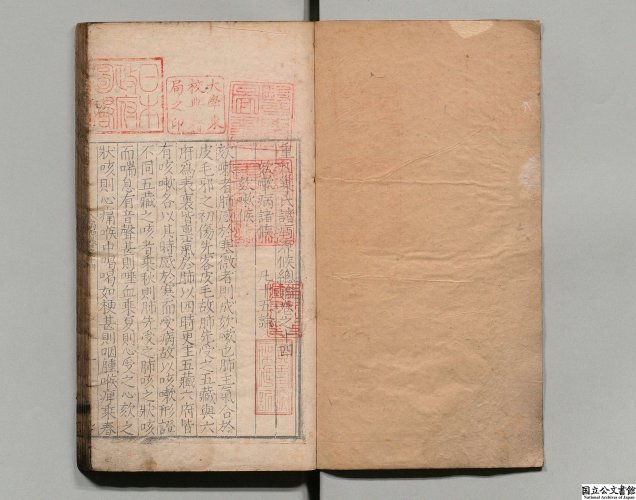 重刊巢氏諸病源候總論卷之十四
欬嗽病諸候 凡十五論
欬嗽候
欬嗽者肺感於寒微者則成欬嗽也肺主氣合於
皮毛邪之初傷先客皮毛故肺先受之五藏與六
府為表裏皆稟氣於肺以四時更王五藏六府皆
有咳嗽各以其時感於寒而受病故以咳嗽形證
不同五藏之咳者乘秋則肺先受之肺咳之狀咳
而喘息有音聲甚則唾血乘夏則心受之心欬之
狀咳則心痛喉中喝喝如梗甚則咽腫喉痺乘春
大學東
校典籍
局之印
日本
政府
圖書
国立公文書館
National Archives of Japan